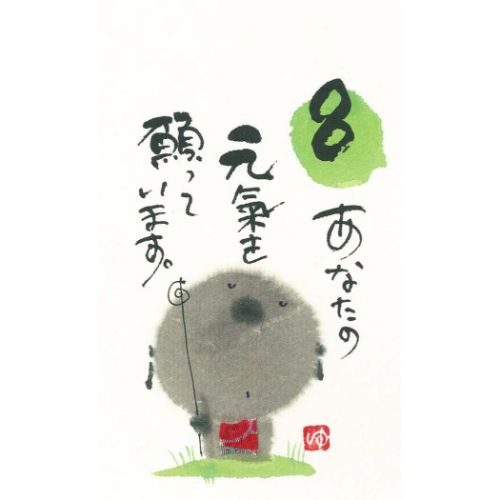 8
あなたの
元氣を
願って
います。
ゆ